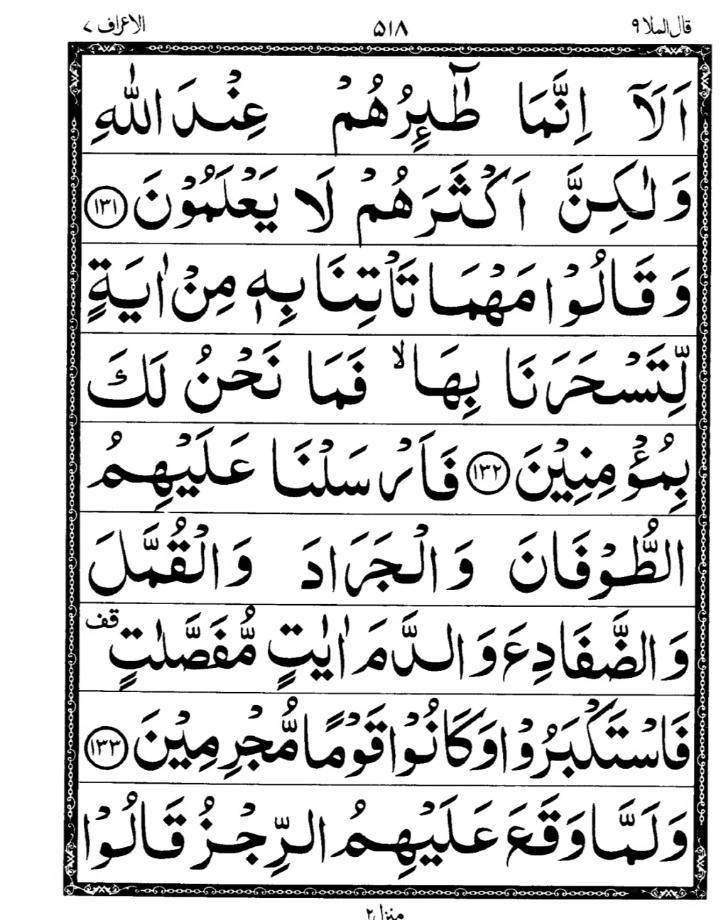 قال الملا ٩ ٥١٨ الاعراف ٧
اَلَاۤ اِنَّمَا طٰٓئِرُهُمْ عِنْدَ اللّٰهِ
وَلٰكِنَّ اَكْثَرَهُمْ لَا يَعْلَمُوْنَ ﴿۱۳۱﴾
وَقَالُوْا مَهْمَا تَاْتِنَا بِهٖ مِنْ اٰيَةٍ
لِّتَسْحَرَنَا بِهَا ۙ فَمَا نَحْنُ لَكَ
بِمُؤْمِنِيْنَ ﴿۱۳۲﴾ فَاَرْسَلْنَا عَلَيْهِمُ
الطُّوْفَانَ وَالْجَرَادَ وَالْقُمَّلَ
وَالضَّفَادِعَ وَالدَّمَ اٰيٰتٍ مُّفَصَّلٰتٍ قف
فَاسْتَكْبَرُوْا وَكَانُوْا قَوْمًا مُّجْرِمِيْنَ ﴿۱۳۳﴾
وَلَمَّا وَقَعَ عَلَيْهِمُ الرِّجْزُ قَالُوْا
منزل ٢